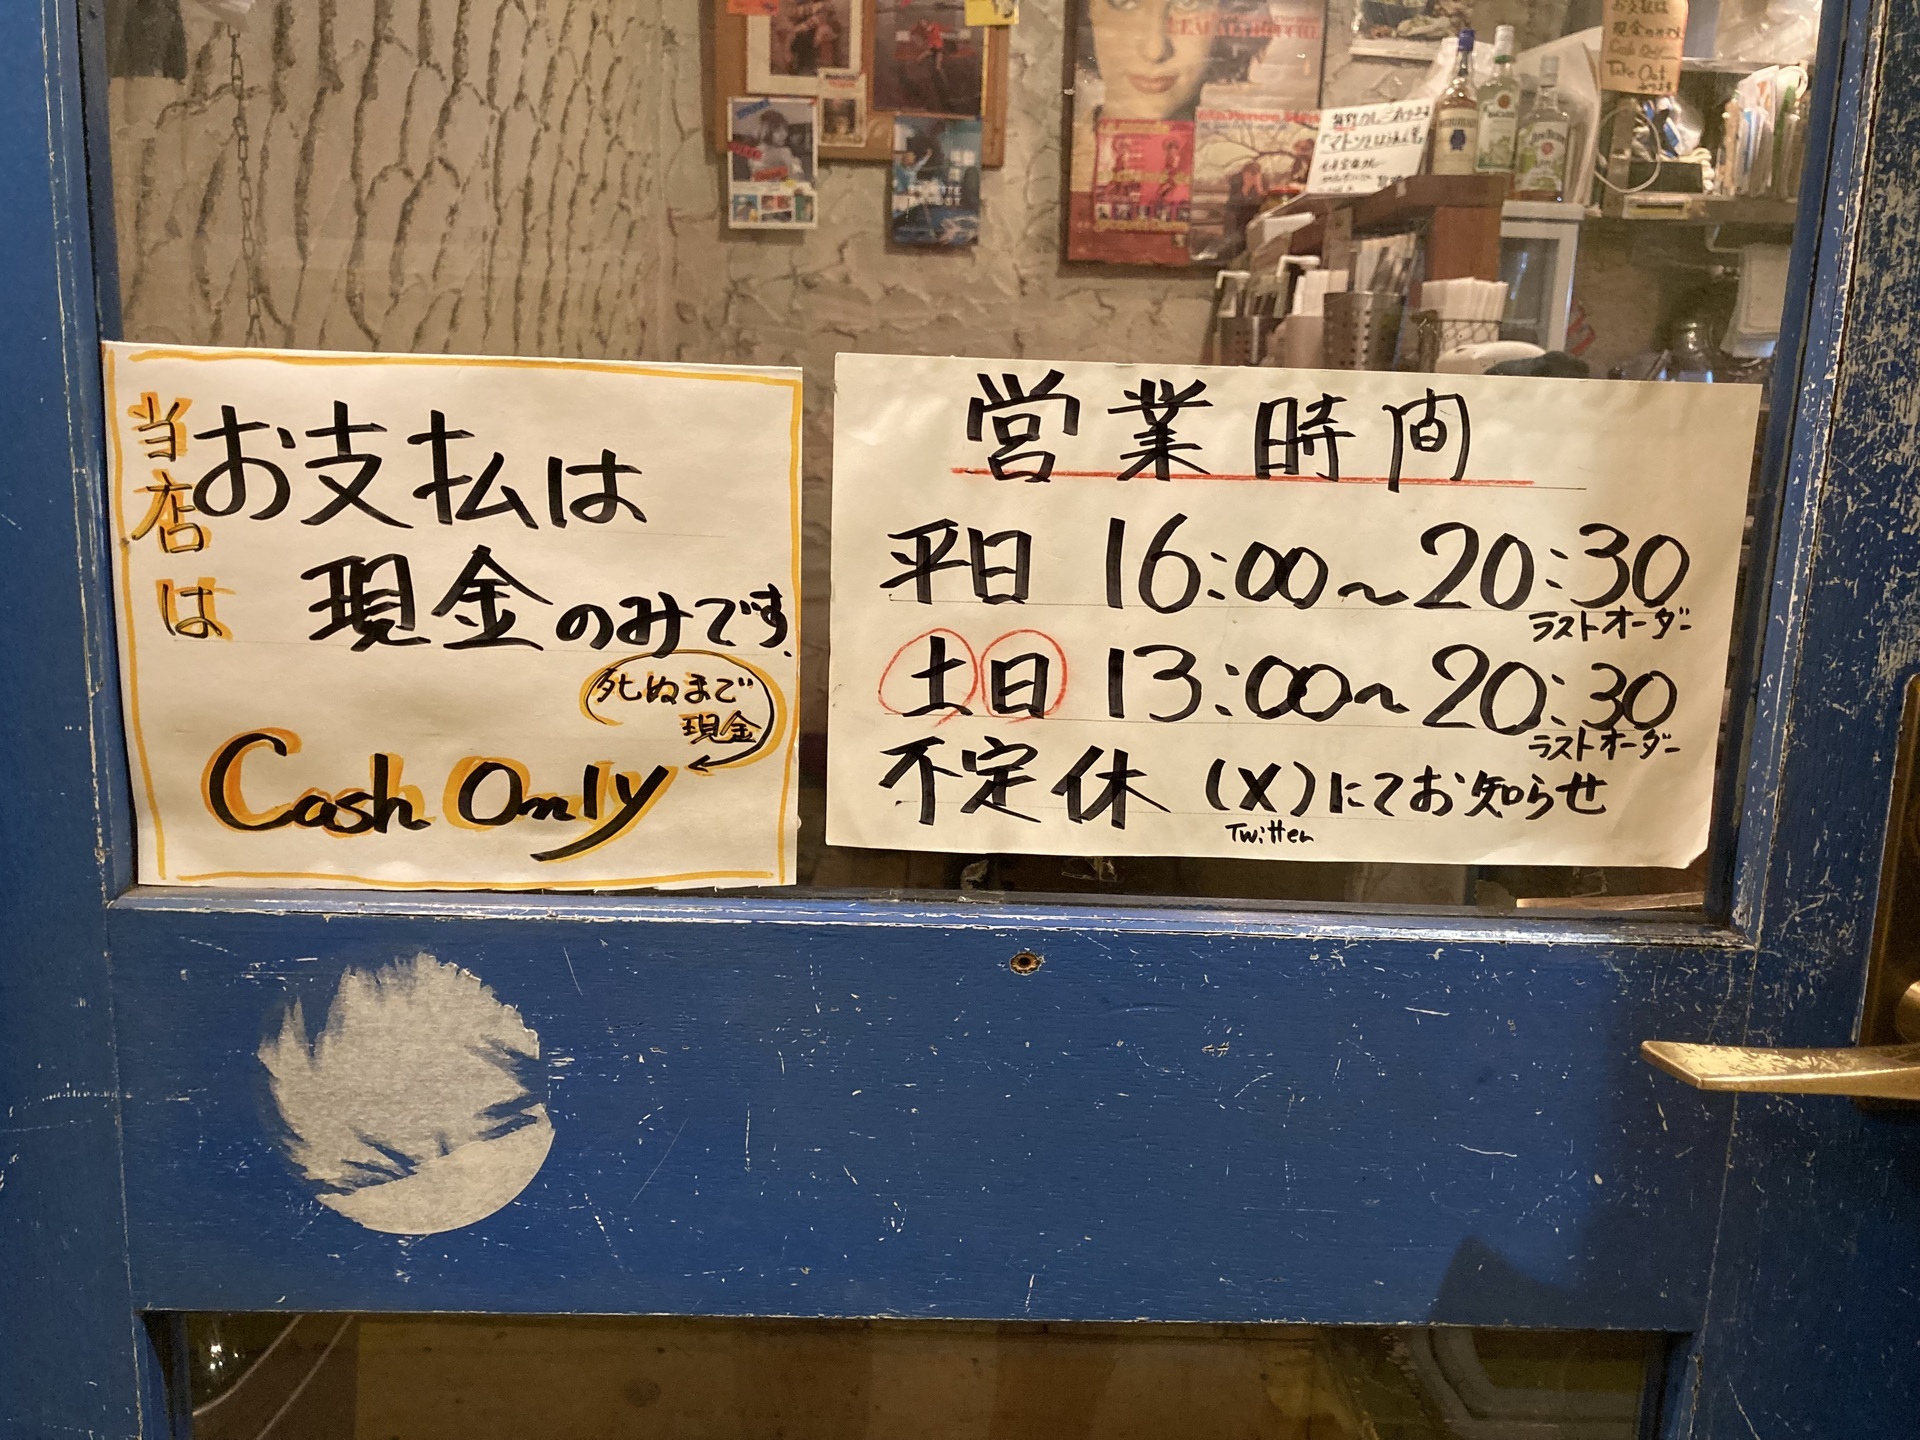 お支払は
現金のみです
Cash Only
Take Out
当店は
お支払は
現金のみです.
死ぬまで
現金
Cash Only
営業時間
平日 16:00~20:30
ラストオーダー
土日 13:00~20:30
ラストオーダー
不定休 (X)にてお知らせ
Twitter